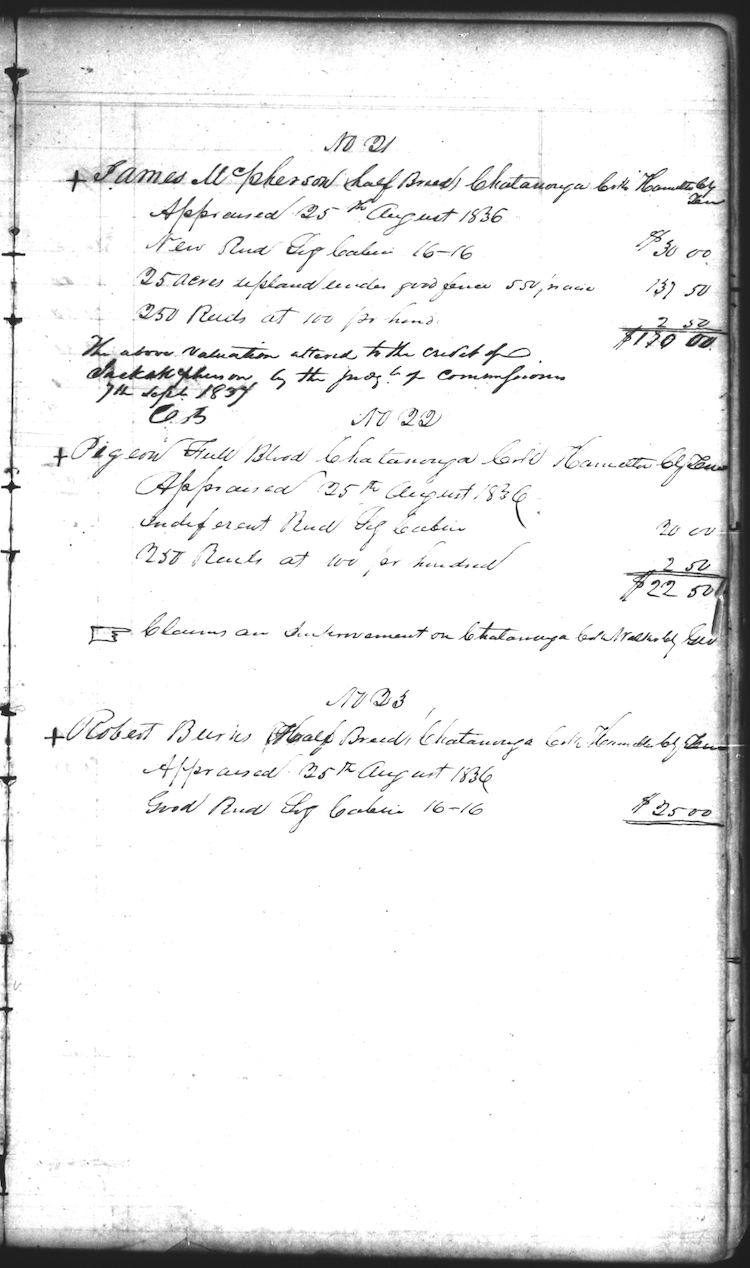 No 21
+ James McPherson (half Breed) Chatanouga Crk Hamilton Cty Ten
Appraised 25th August 1836
New Rud Log Cabin 16-16 $30 00
25 acres upland under good fence 550 pr acre 137 50
250 Rails at 100 pr hund. 2 50
$170 00
The above valuation altered to the credit of
Jack McPherson by the Judgt of Commissioners
7th Sept 1837
No 22
+ Pigeon Full Blood Chatanouga Crk Hamilton Cty Tenn
Appraised 25th August 1836
Indiferent Rud Log Cabin 20 00
250 Rails at 100 pr hundred 2 50
$22 50
Claims an Improvement on Chatanouga Crk Walker Cty Geo
No 23
+ Robert Burns (Half Breed) Chatanouga Crk Hamilton Cty Tenn
Appraised 25th August 1836
Good Rud Log Cabin 16-16 $25 00